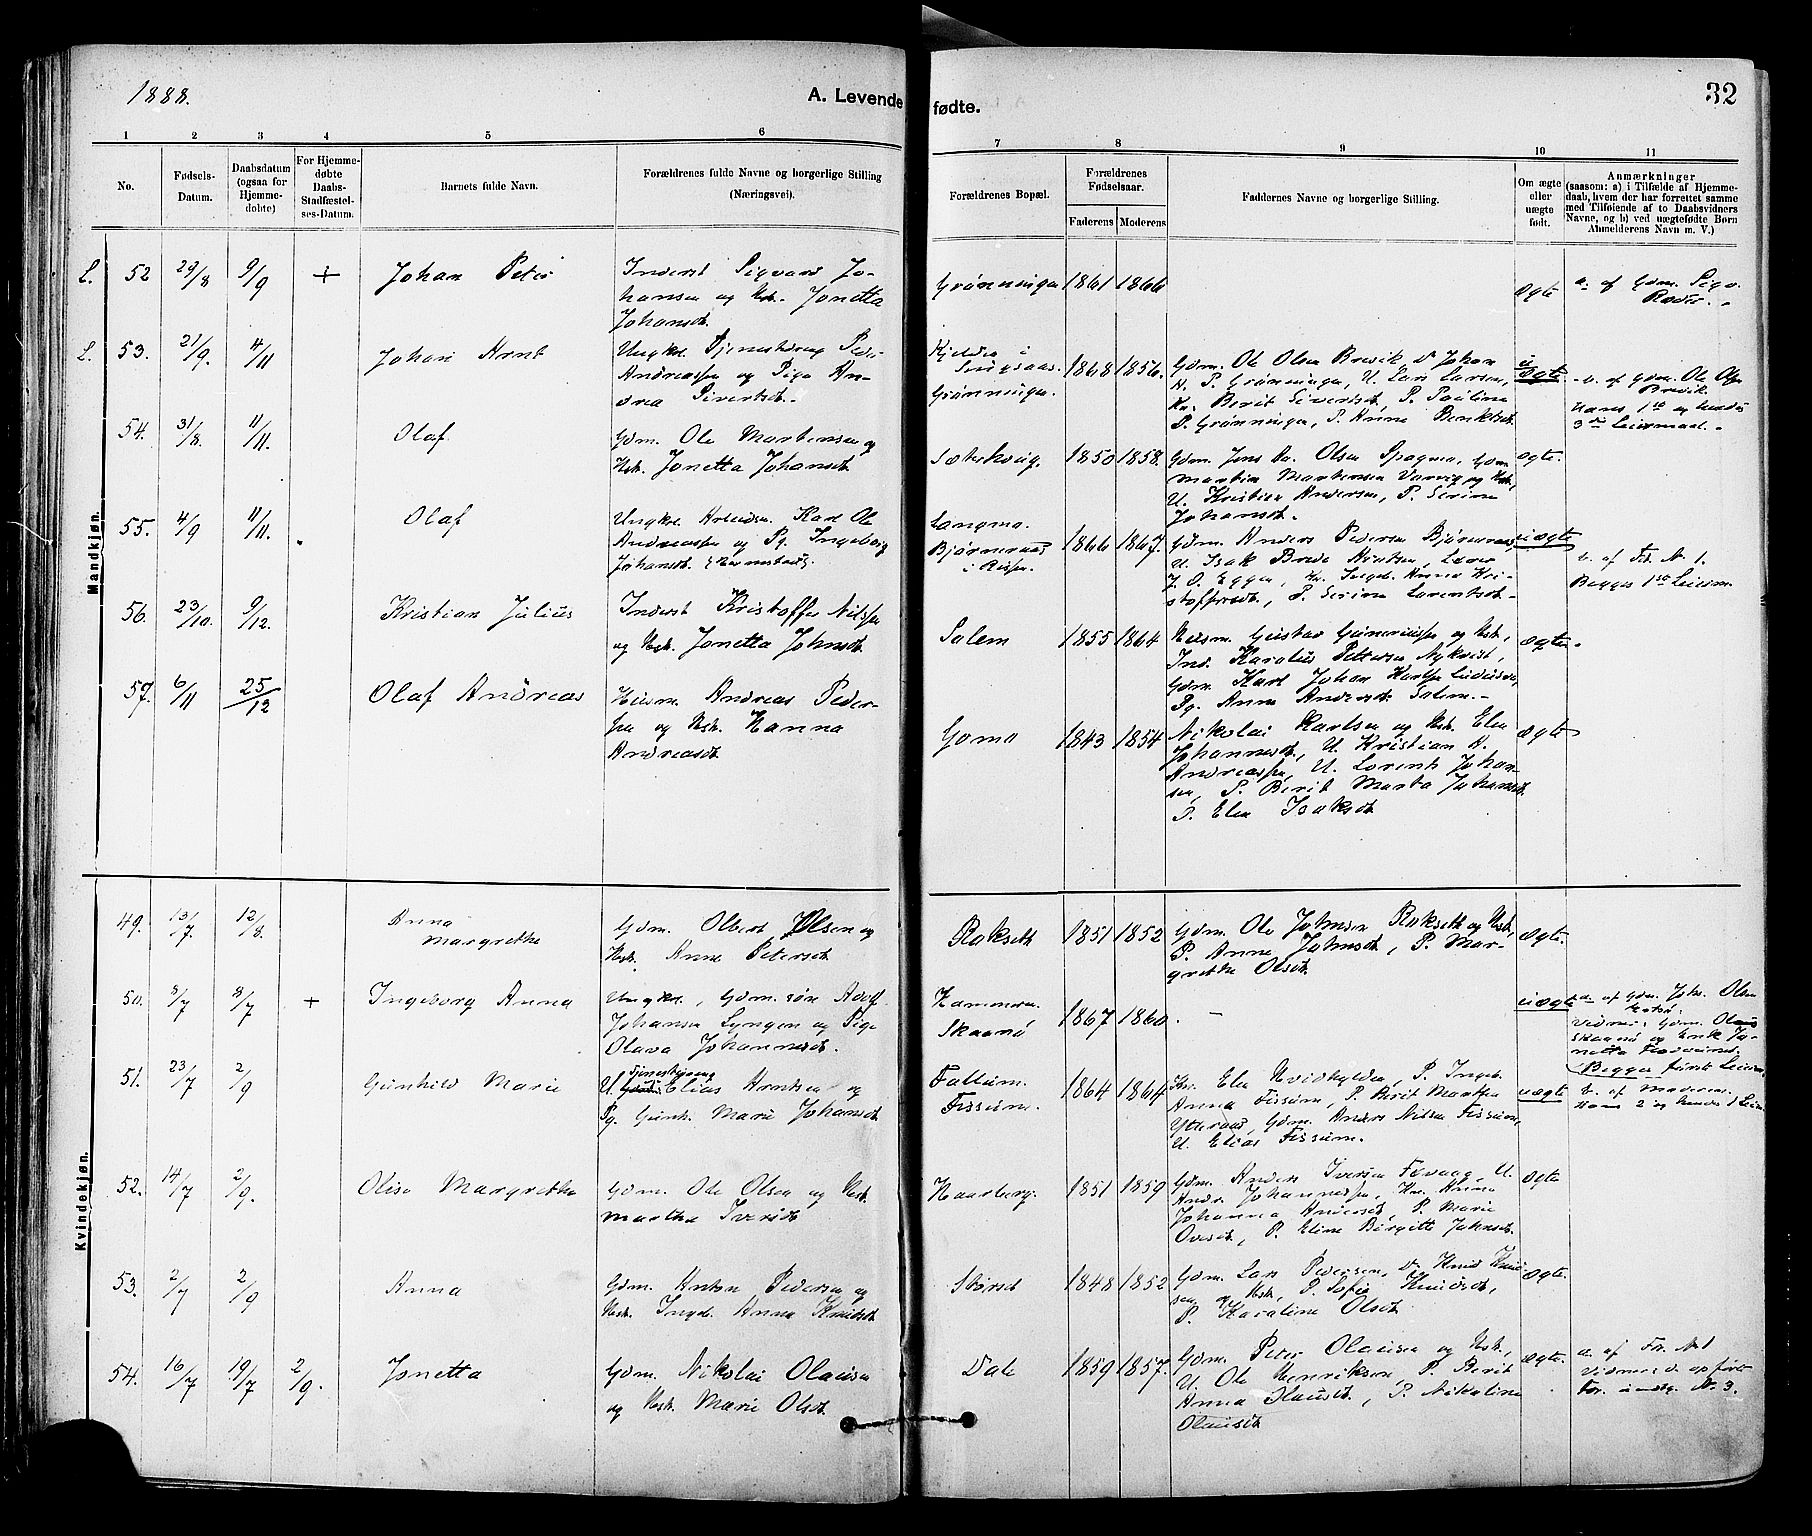 1888.
A. Levende
fødte.
32
1 2 3 4 5 6 7 8 9 10 11
No.
Fødsels-
Datum.
Daabsdatum
(ogsaa for
Hjemme-
døbte)
For Hjemme-
døbte
Daabs-
Stadfæstel-
ses-Datum.
Barnets fulde Navn.
Forældrenes fulde Navne og borgerlige Stilling
(Næringsvei).
Forældrenes Bopæl.
Forældrenes
Fødselsaar.
Faderens Moderens
Faddernes Navne og borgerlige Stilling.
Om ægte
eller
uægte
født.
Anmærkninger
(saasom: a) i Tilfælde af Hjemme-
daab, hvem der har forrettet samme
med Tilføiende af to Daabsvidners
Navne, og b) ved uægtefødte Børn
Anmelderens Navn m. V.)
Mandkjøn.
L. 52 29/8 9/9 + Johan Peter
Inderst Sigvard Jo-
hansen og Hst. Jonetta
Johansdt.
Grønningen 1861 1866
ægte
a. af Gdm. Sigv.
L. 53. 21/9. 4/11 Johan Arnt
Ungkr. Tjenestedreng Peder
Andreassen og Pige An-
drea Sivertsdt.
Grønningen. 1868 1856.
Gdm. Ole Olsen Brevik, Johan
A. P. Grønningen, U. Lars Larsen,
Kr. Berit Sivertsdt, P. Pauline
P. Grønningen, P. Anne Benktsdt.
uægte.
b. af Gdm. Ole Olsen
Brevik
Hans 1ste og hendes
3die Leiermaal.
54. 31/8. 11/11 Olaf.
Gdm. Ole Martensen og
Hst. Jonetta Johansdt.
Sæterhaug. 1850 1858.
Gdm. Jens Olsen
Martin Martensen og Hst.,
U. Kristian Andersen, P. Serine
Johansdt.
ægte.
55. 4/9 11/11. Olaf
Ungkr. Arbeidsm. Karl Ole
Andreassen og Pg. Ingeborg
Johansdt.
Langmo.
i Rissen. 1866 1867.
Gdm. Anders Pedersen
U. Isak Brede Arntsen,
J. O. Eggen, Kr. Ingeb. Anna Kri-
stoffersdt., P. Serine Lorentsdt.
uægte
b. af Fd. N. 1.
Begges 1ste Leierm.
56. 23/10. 9/12. Kristian Julius
Inderst Kristoffer Nilssen
og Hst. Jonetta Johnsdt.
Salem 1855 1864
Husm. Gustav og Hst.,
Ind. Karolius Pettersen Nykvist,
Gdm. Karl Johan
Pg. Anna Andersdt. Salem.
ægte.
57. 6/11 25/12 Olaf Andreas
Husm. Andreas Peder-
sen og Hst. Hanna
Andreasdt.
Gomo 1843 1854
Nikolai Karlsen og Hst. Elen
Johannesdt., U. Kristian A.
Andreassen, U. Lorents Johan-
sen, P. Berit Marta Johansdt.
P. Elen Isaksdt.
ægte
Kvindekjøn.
49. 13/7. 12/8. Anna
Margrethe
Gdm. Olbert Olsen og
Hst. Anne Petersdt.
Rokseth 1851 1852
Gdm. Ole Johnsen Rokseth og Hst.,
P. Anne Johnsdt., P. Mar-
grethe Olsdt.
ægte.
50. 8/7 8/7 + Ingeborg Anna
Ungkr., Gdm. søn Adolf
Johansen Lyngen og Pige
Olava Johannesdt.
Skaanø 1867 1860.
-
uægte
a. af Gdm. Joh. Olsen
Vidner: Gdm. Olaus
Skaanø og Enke Jo-
netta
Begges første Leierm.
51. 23/7 2/9 Gunhild Marie
Tjenestedreng
U. Elias Arntsen og
Pg. Gunh. Marie Johansdt.
Fallum.
Fissum. 1864 1864
Kr. Elen P. Ingeb.
Anna Fissum, P. Berit
Ytteraas, Gdm. Anders Nilsen Fissum,
U. Elias Fissum.
uægte
b. af Moderen.
Hans 2 og hendes 1 Leierm.
52. 14/7 2/9. Olise Margrethe
Gdm. Ole Olsen og Hst.
Martha Iversdt.
Haarberg. 1851 1859
Gdm. Anders Iversen Fevaag, U.
Andr. Johannessen, Kr. Anna
Johanna Andersdt., P. Marie
Ovesdt., P. Eline Birgitte Johnsdt.
ægte
53. 2/7 2/9 Anna
Gdm. Anton Pedersen og
Hst. Ingeb. Anna Knudsdt.
Størset 1848 1852
Gdm. Lars Pedersen, Do Knud Knud-
sen og Hst., P. Sofie Knudsdt.,
P. Karoline Olsdt.
ægte.
54. 16/7 19/7 2/9. Jonetta
Gdm. Nikolai Olausen
og Hst. Marie Olsdt.
Dale 1859 1857.
Gdm. Peter Olausen og Hst.,
U. Ole Henriksen, P. Berit
Anna Olausdt., P. Nikoline
Olausdt
ægte.
a. af Fd. N. 1